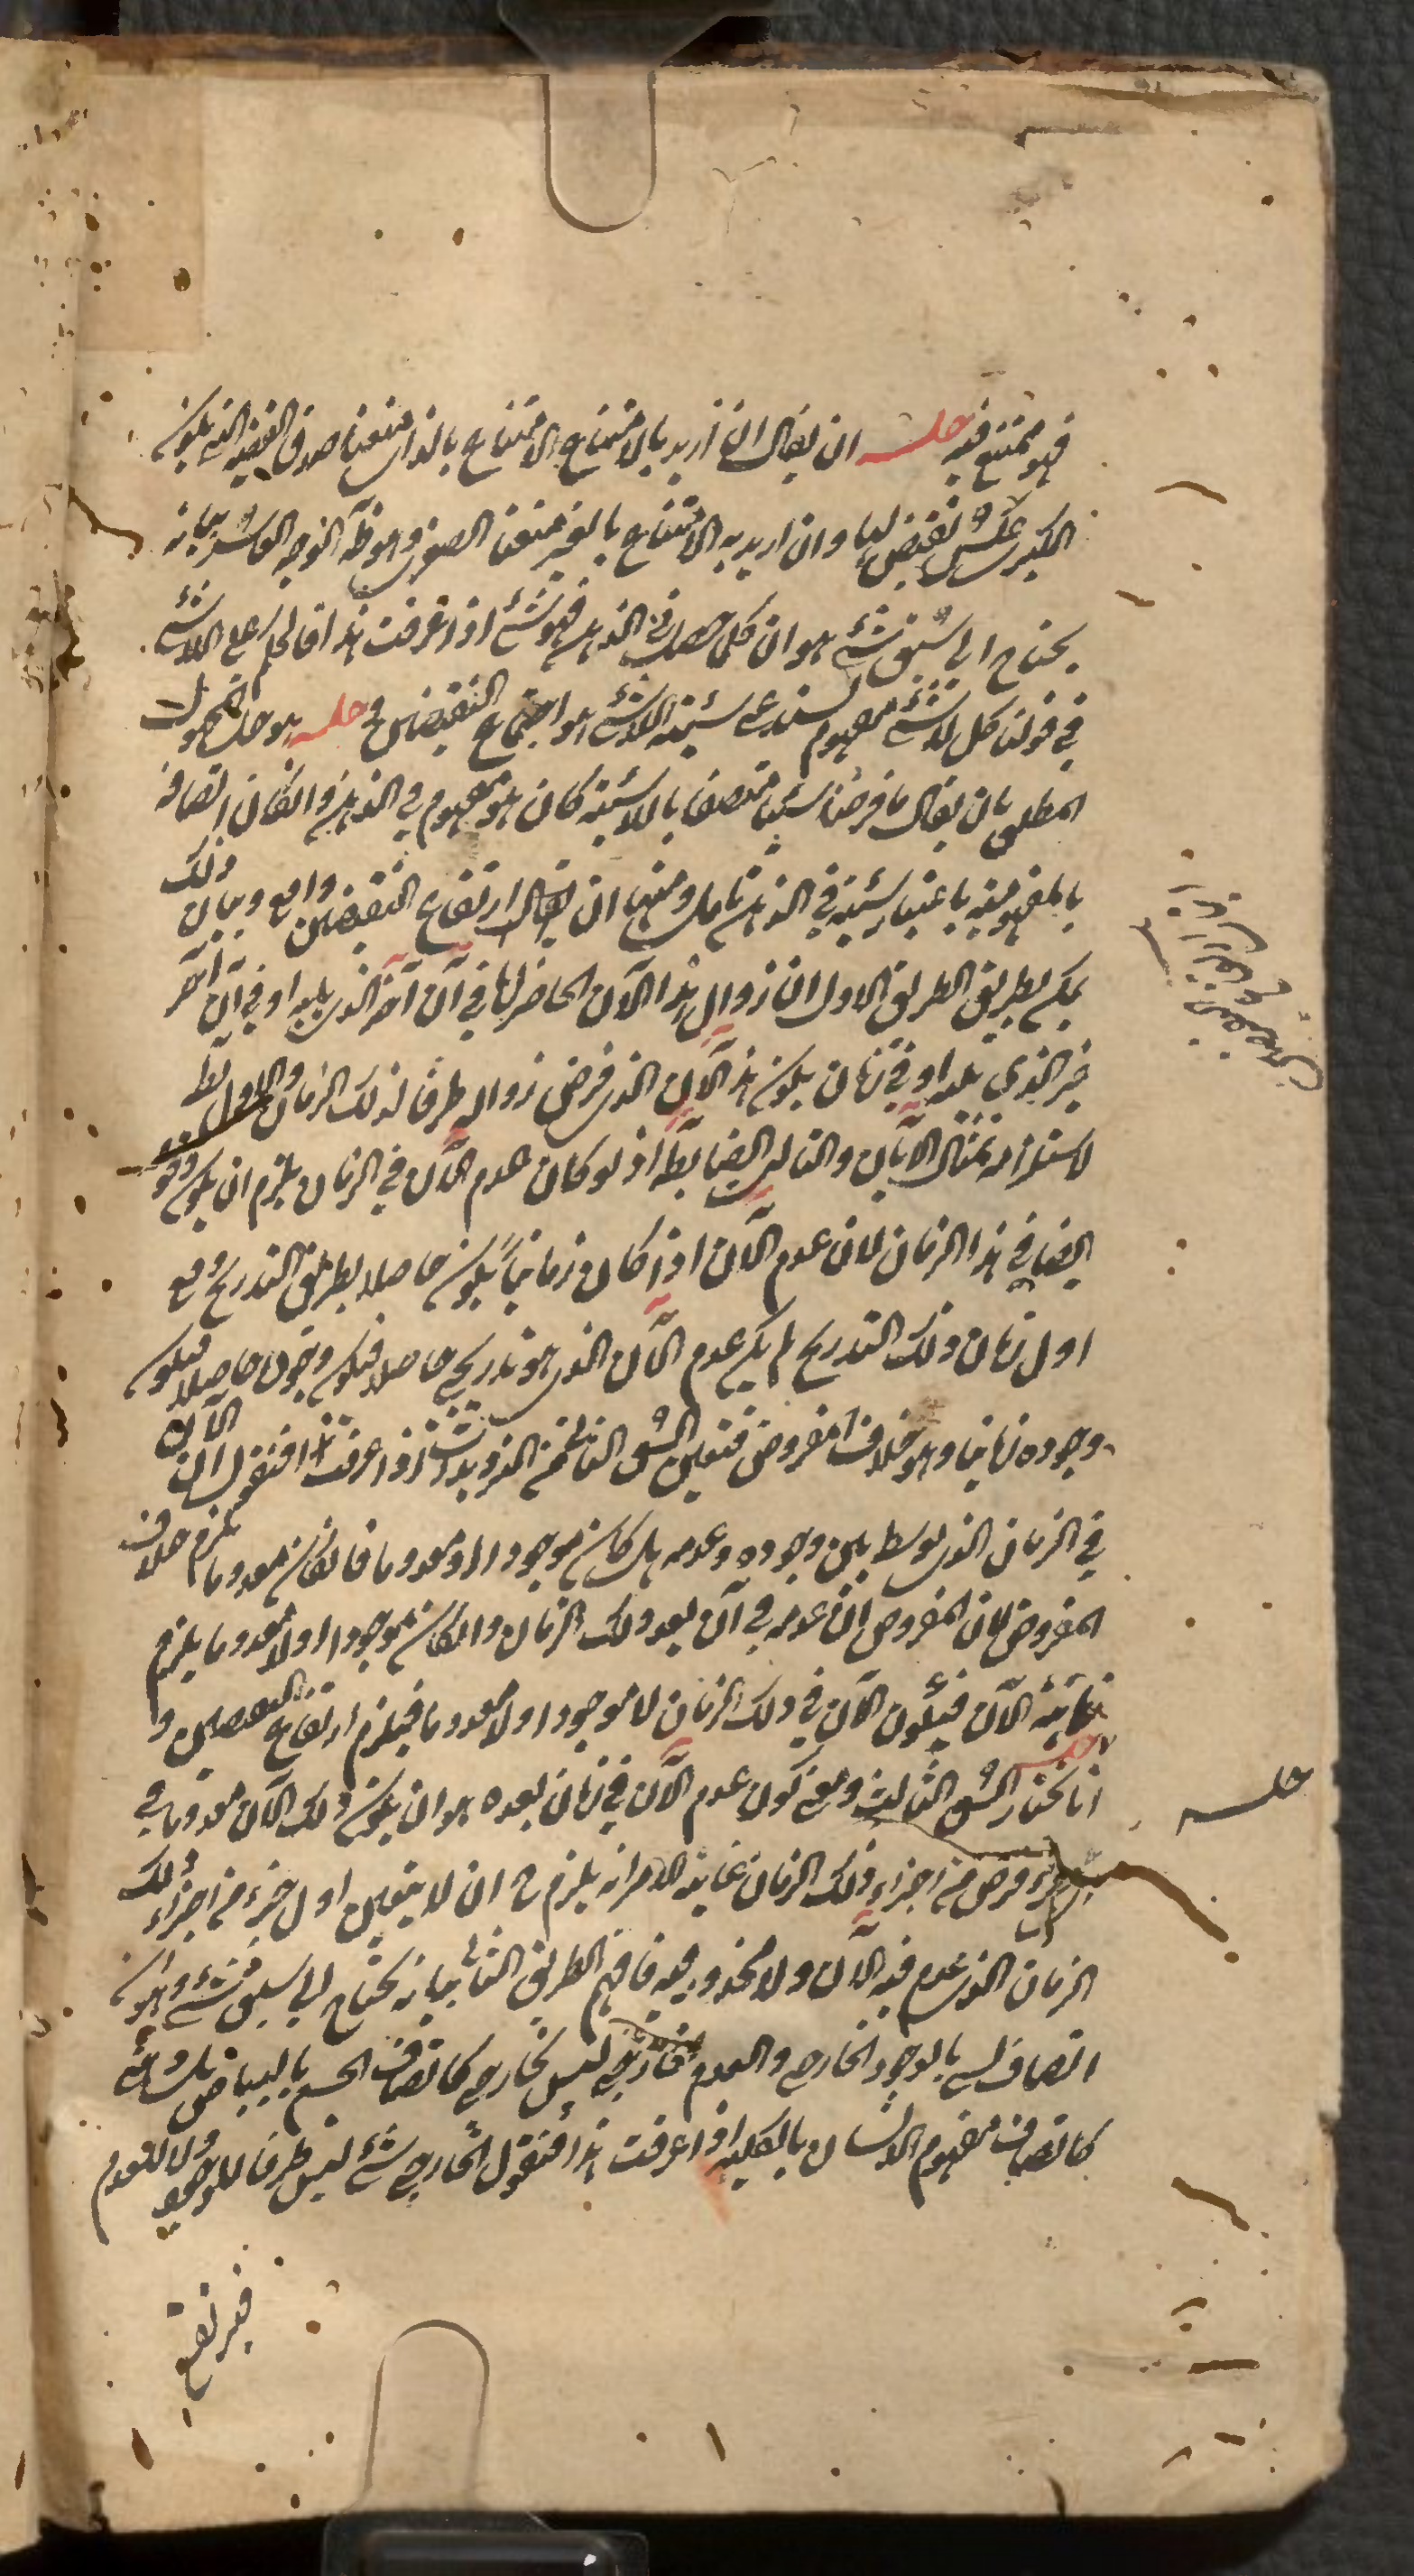 فهو ممتنع فيه حله ان يقال ان اريد بالامتناع الامتناع بالذات منعنا صدق القضية التي يكون
الكبرى عكس نقيض لها وان اريد به الامتناع بالغير منعنا الصغرى وهو ظ الوجه العاشر بيانه
يحتاج الى سبق شئ هو ان كل ما حصل في الذهن فهو شئ اذا عرفت هذا فالحكم على اللاشئ
في قولنا كل لاشئ مفهوم يستدعى شيئية اللاشئ هو اجتماع النقيضين وحله هو حل المجهول
المطلق بان يقال ما فرضناه شيئا متصفا باللاشيئية كان هو مفهوم في الذهن وان كان اتصافه
بالمفهومية باعتبار شيئيته في الذهن تامل ومنها ان يقال ارتفاع النقيضين واقع وبيان ذلك
يمكن بطريق الطريق الاول ان زوال هذا الآن الحاضر اما في آن آخر الذي يليه او في آن آخر
غير الذي يليه او في زمان يكون هذا الآن الذي فرض زواله طرفا لذلك الزمان والاول بط
لاستلزامه تتالى الآنات والثالث ايضا بط اذ لو كان عدم الآن في الزمان يلزم ان يكون وجوده
ايضا في هذا الزمان لان عدم الآن اذا كان زمانيا يكون حاصلا بطريق التدريج وفي
اول زمان ذلك التدريج لم يكن عدم الآن الذي هو تدريجي حاصلا فيكون وجوده حاصلا فيكون
وجوده زمانيا وهو خلاف المفروض فتعين الشق الثانى من الترديدات اذا عرفت هذا فنقول ان الآن
في الزمان الذي توسط بين وجوده وعدمه هل كان موجودا او معدوما فان كان معدوما يلزم خلاف
المفروض لان المفروض ان عدمه في آن بعد ذلك الزمان وان كان موجودا او لا معدوما يلزم
زمانية الآن فيكون الآن في ذلك الزمان لا موجودا ولا معدوما فيلزم ارتفاع النقيضين و
حله انا نختار الشق الثالث ومعنى كون عدم الآن في زمان بعده هو ان يكون ذلك الآن معدوما في
اى جزء فرض من اجزاء ذلك الزمان غاية الامر انه يلزم ح ان لا يتعين اول جزء من اجزاء ذلك
الزمان الذي عدم فيه الآن ولا محذور فيه فافهم الطريق الثانى بيانه يحتاج الى سبق شئ وهو ان
اتصاف شئ بالوجود الخارجي والعدم الخارجي ليس بخارجي كاتصاف الجسم بالبياض بل
كاتصاف مفهوم الانسان بالكلية اذا عرفت هذا فنقول الخارجي شئ ليس ظرفا للوجود ولا للعدم
حله